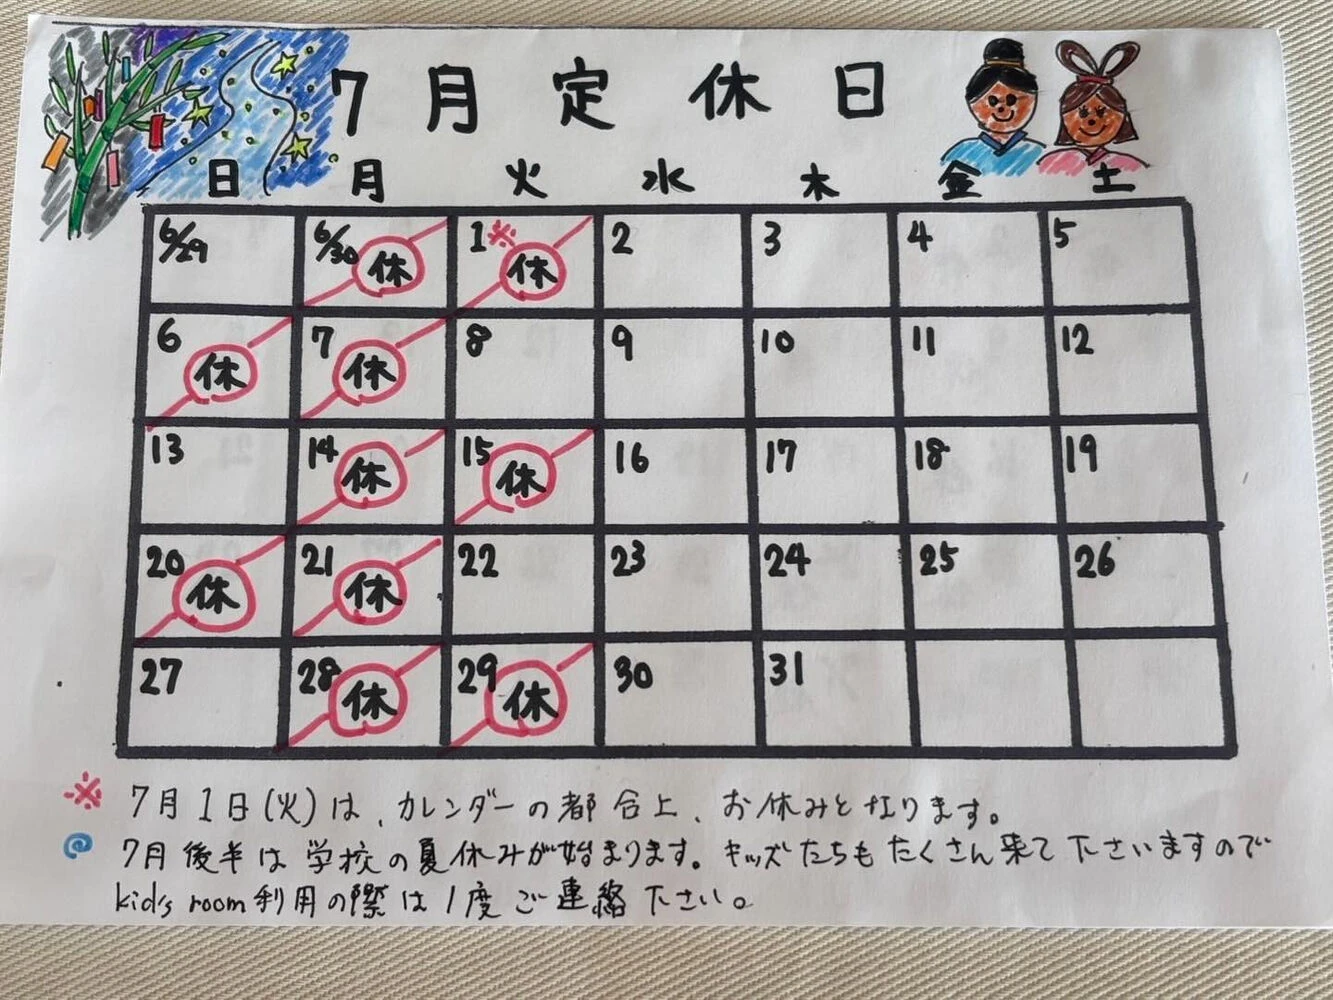 7月定休日
日 月 火 水 木 金 土
6/29 6/30 休 1※ 休 2 3 4 5
6 休 7 休 8 9 10 11 12
13 14 休 15 休 16 17 18 19
20 休 21 休 22 23 24 25 26
27 28 休 29 休 30 31
※ 7月1日(火)は、カレンダーの都合上、お休みとなります。
7月後半は学校の夏休みが始まります。キッズたちもたくさん来て下さいますので
kid's room利用の際は1度ご連絡下さい。